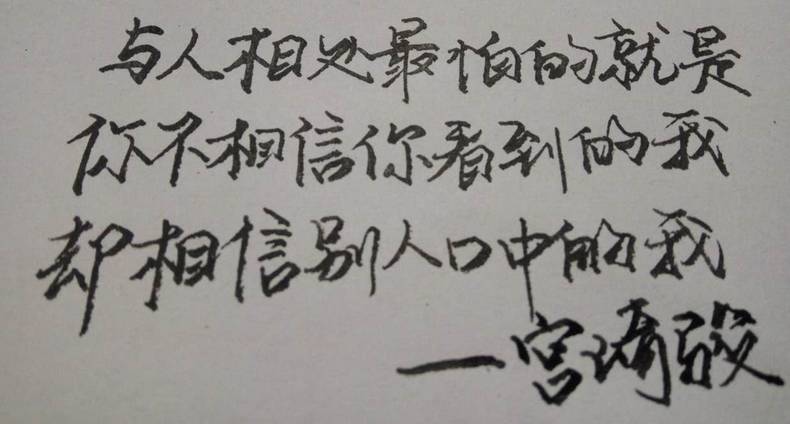 与人相处最怕的就是
你不相信你看到的我
却相信别人口中的我
一宫琦骏